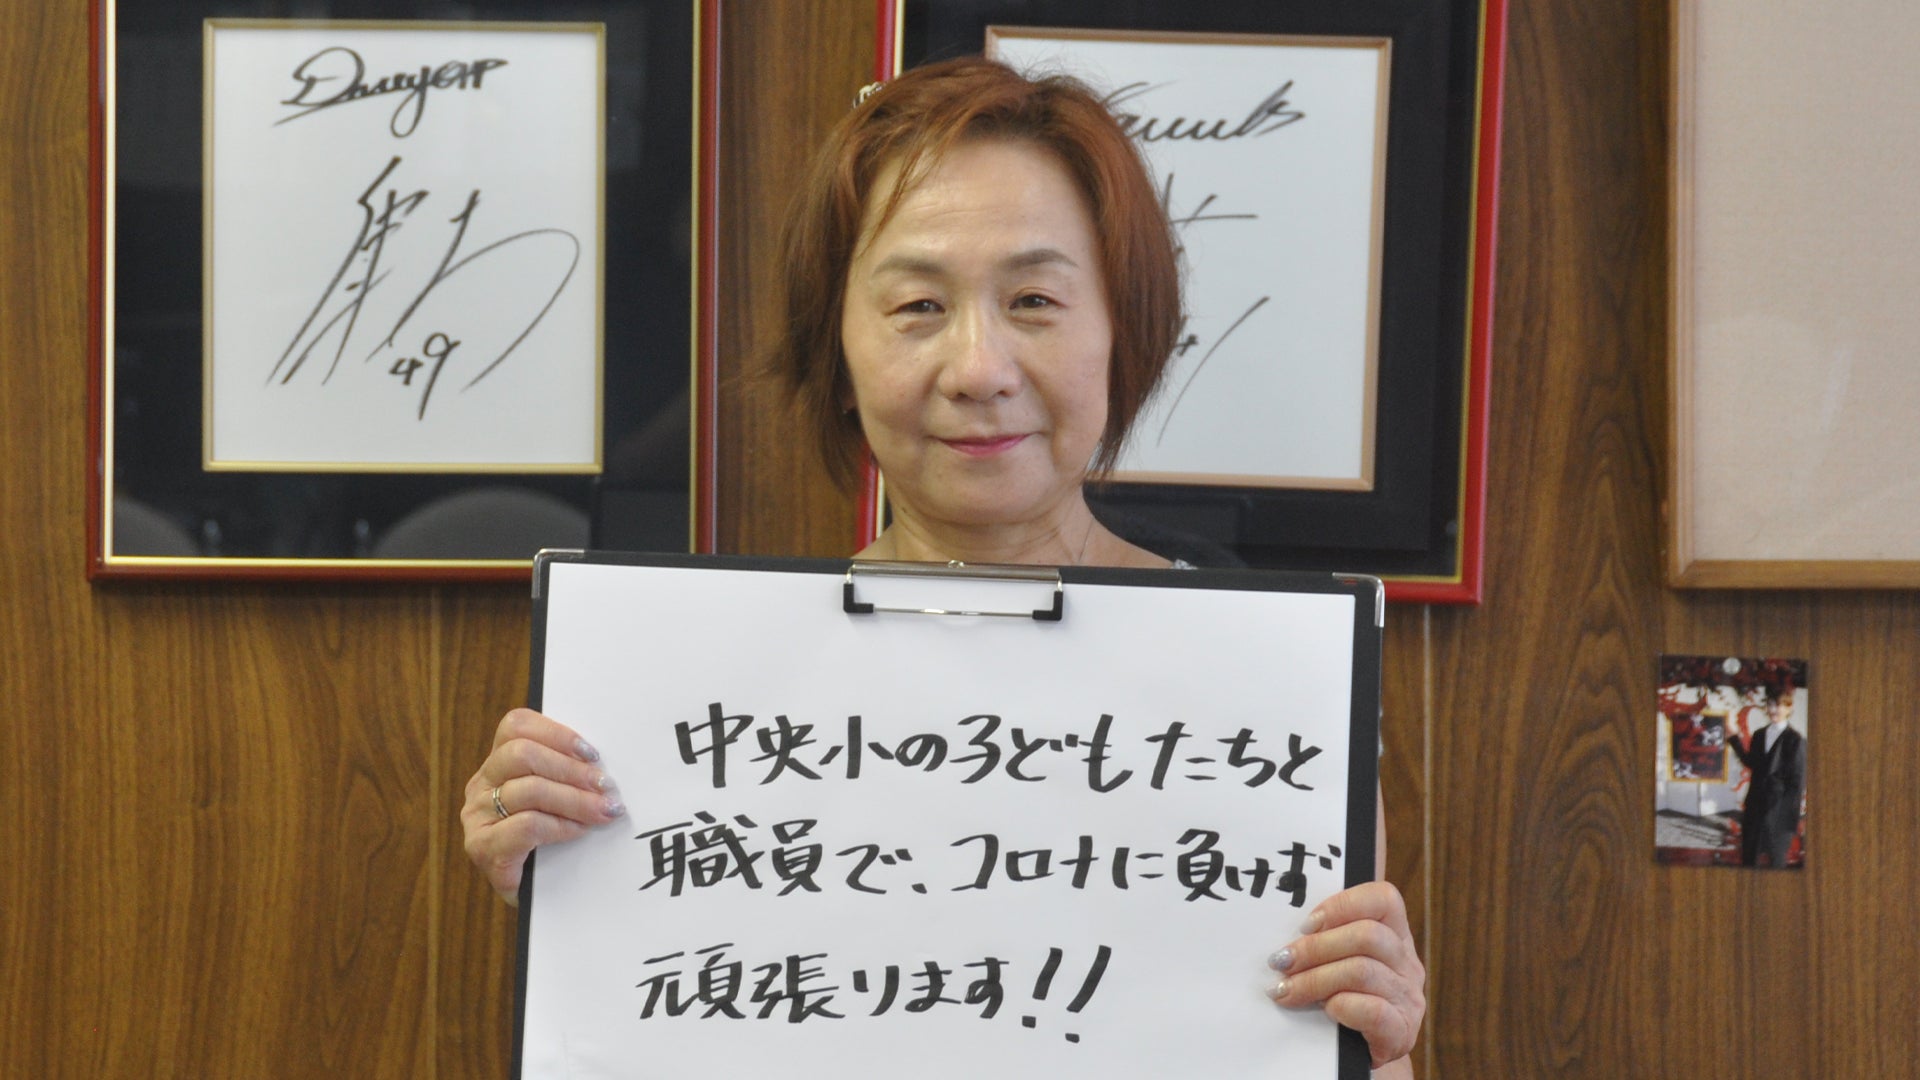 49
中央小の子どもたちと
職員で、コロナに負けず
頑張ります!!